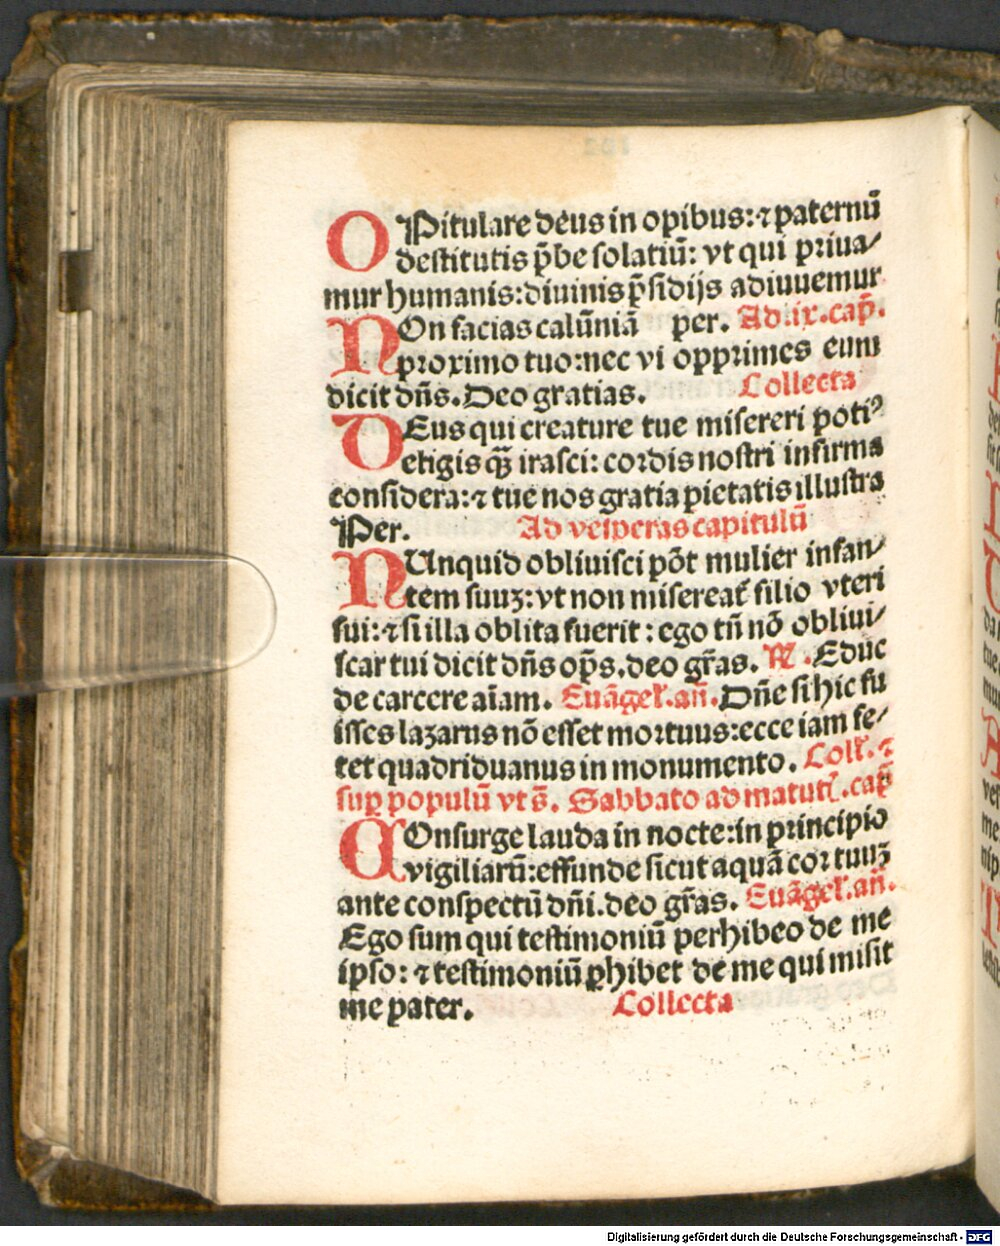 OPitulare deus in opibus: ⁊ paternū
destitutis p̄be solatiū: vt qui priua/
mur humanis: diuinis p̄sidijs adiuuemur
NOn facias calūniā per. Ad .ix. cap̄.
proximo tuo: nec vi opprimes eum
dicit dn̄s. Deo gratias. Collecta
DEus qui creature tue misereri potiꝰ
eligis q̄ꝫ irasci: cordis nostri infirma
considera: ⁊ tue nos gratia pietatis illustra
Per. Ad vesperas capitulū
NUnquid obliuisci pōt mulier infan/
tem suuꝫ: vt non misereat̄ filio vteri
sui: ⁊ si illa oblita fuerit: ego tn̄ nō obliui/
scar tui dicit dn̄s op̄s. deo gr̄as. ℟. Educ
de carcere aīam. Euāgel̄. an̄. Dn̄e si hic fu
isses lazarus nō esset mortuus: ecce iam fe/
tet quadriduanus in monumento. Coll̄. ⁊
sup̱ populū vt s̄. Sabbato ad matuti. cap̄
COnsurge lauda in nocte: in principio
vigiliarū: effunde sicut aquā cor tuuꝫ
ante conspectū dn̄i. deo gr̄as. Euāgel̄. an̄.
Ego sum qui testimoniū perhibeo de me
ipso: ⁊ testimoniū ꝑhibet de me qui misit
me pater. Collecta
Digitalisierung gefördert durch die Deutsche Forschungsgemeinschaft - DFG